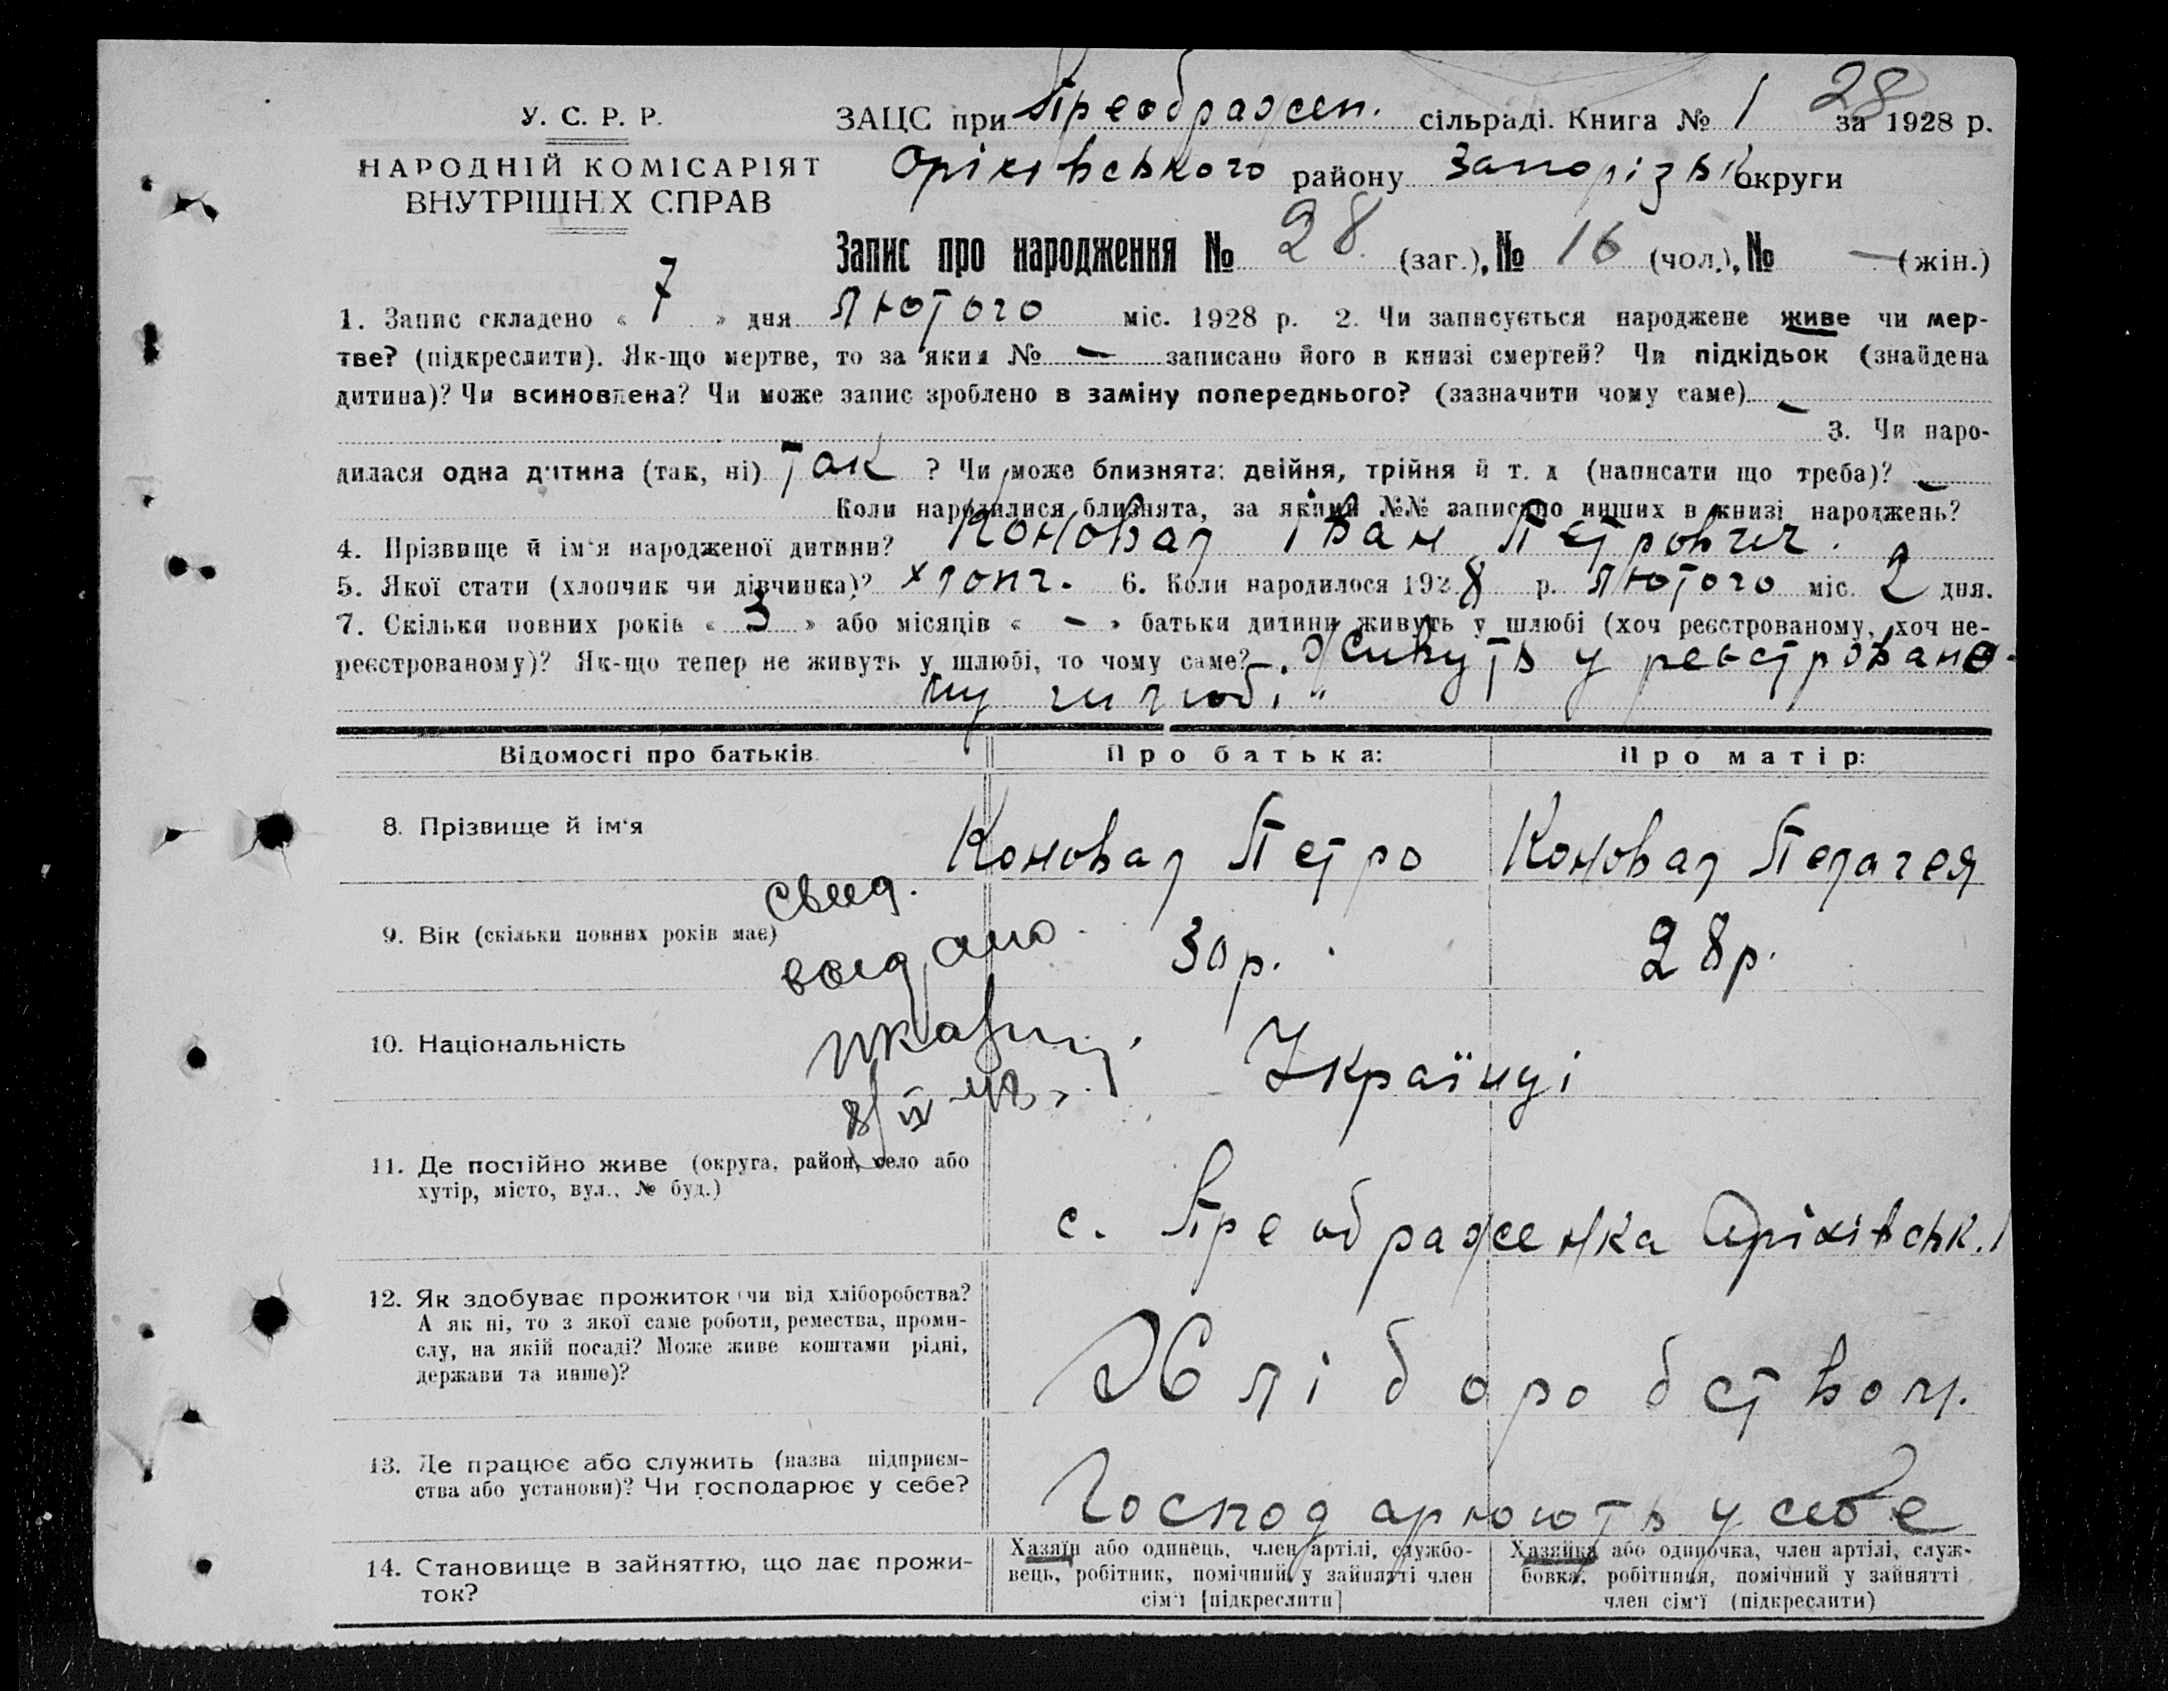 28
У. С. Р. Р.
НАРОДНІЙ КОМІСАРІЯТ
ВНУТРІШНІХ СПРАВ
ЗАЦС при Преображен. сільраді. Книга № 1 за 1928 р.
Оріхівського району Запорізьк округи
Запис про народження № 28 (заг.), № 16 (чол.), № — (жін.)
1. Запис складено « 7 » дня лютого міс. 1928 р. 2. Чи записується народжене живе чи мер-
тве? (підкреслити). Як-що мертве, то за яким № — записано його в книзі смертей? Чи підкідьок (знайдена
дитина)? Чи всиновлена? Чи може запис зроблено в заміну попереднього? (зазначити чому саме) —
3. Чи наро-
дилася одна дитина (так, ні) так ? Чи може близнята: двійня, трійня й т. д (написати що треба)? —
Коли народилися близнята, за якими №№ записано инших в книзі народжень?
4. Прізвище й ім'я народженої дитини? Коновал Іван Петрович.
5. Якої стати (хлопчик чи дівчинка)? хлопч. 6. Коли народилося 1928 р. лютого міс. 2 дня.
7. Скільки повних років « 3 » або місяців « - » батьки дитини живуть у шлюбі (хоч реєстрованому, хоч не-
реєстрованому)? Як-що тепер не живуть у шлюбі, то чому саме? —. Живуть у реєстровано-
му шлюбі "
Відомості про батьків
Про батька:
Про матір:
8. Прізвище й ім'я
Коновал Петро
Коновал Пелагея
свид.
видано
9. Вік (скільки повних років має)
30 р.
28 р.
10. Національність
Українці
8/IV
11. Де постійно живе (округа, район, село або
хутір, місто, вул., № буд.)
с. Преображенка Оріхівськ.
12. Як здобуває прожиток (чи від хліборобства?
А як ні, то з якої саме роботи, ремества, проми-
слу, на якій посаді? Може живе коштами рідні,
держави та инше)?
Хліборобством.
13. Де працює або служить (назва підприєм-
ства або установи)? Чи господарює у себе?
Господарюють у себе
14. Становище в зайняттю, що дає прожи-
ток?
Хазяїн або одинець, член артілі, службо-
вець, робітник, помічний у зайнятті член
сім'ї [підкреслити]
Хазяйка або одиночка, член артілі, служ-
бовка, робітниця, помічний у зайнятті
член сім'ї (підкреслити)